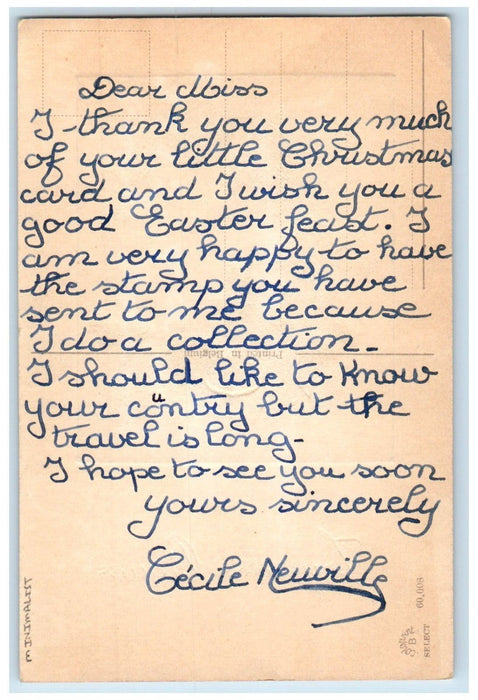 Dear Miss
I thank you very much
of your little Christmas
card and I wish you a
good Easter feast. I
am very happy to have
the stamp you have
sent to me because
I do a collection.
Printed in Belgium
I should like to know
your country but the
travel is long.
I hope to see you soon
yours sincerely
Cécile Neuville
MINIMALIST
SELECT 60.008